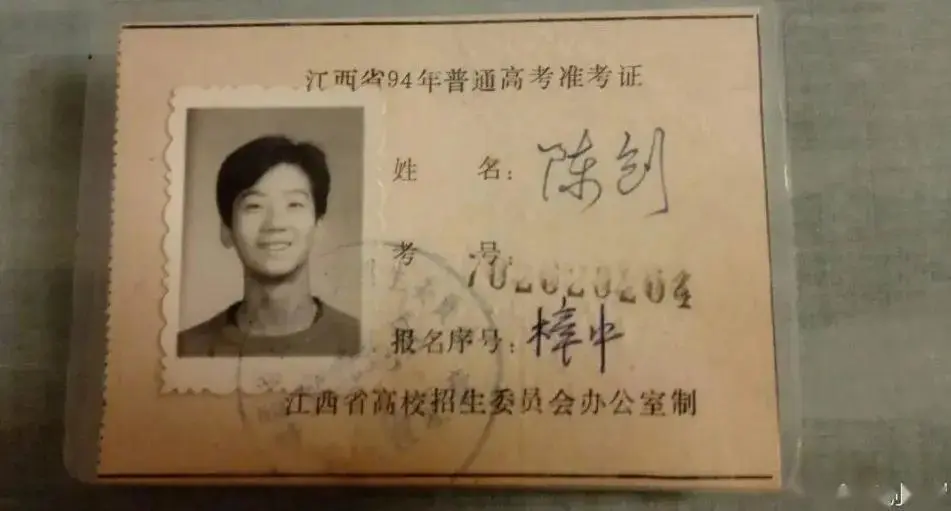 江西省94年普通高考准考证
姓 名：陈剑
考 号：702020204
报名序号：樟中
江西省高校招生委员会办公室制